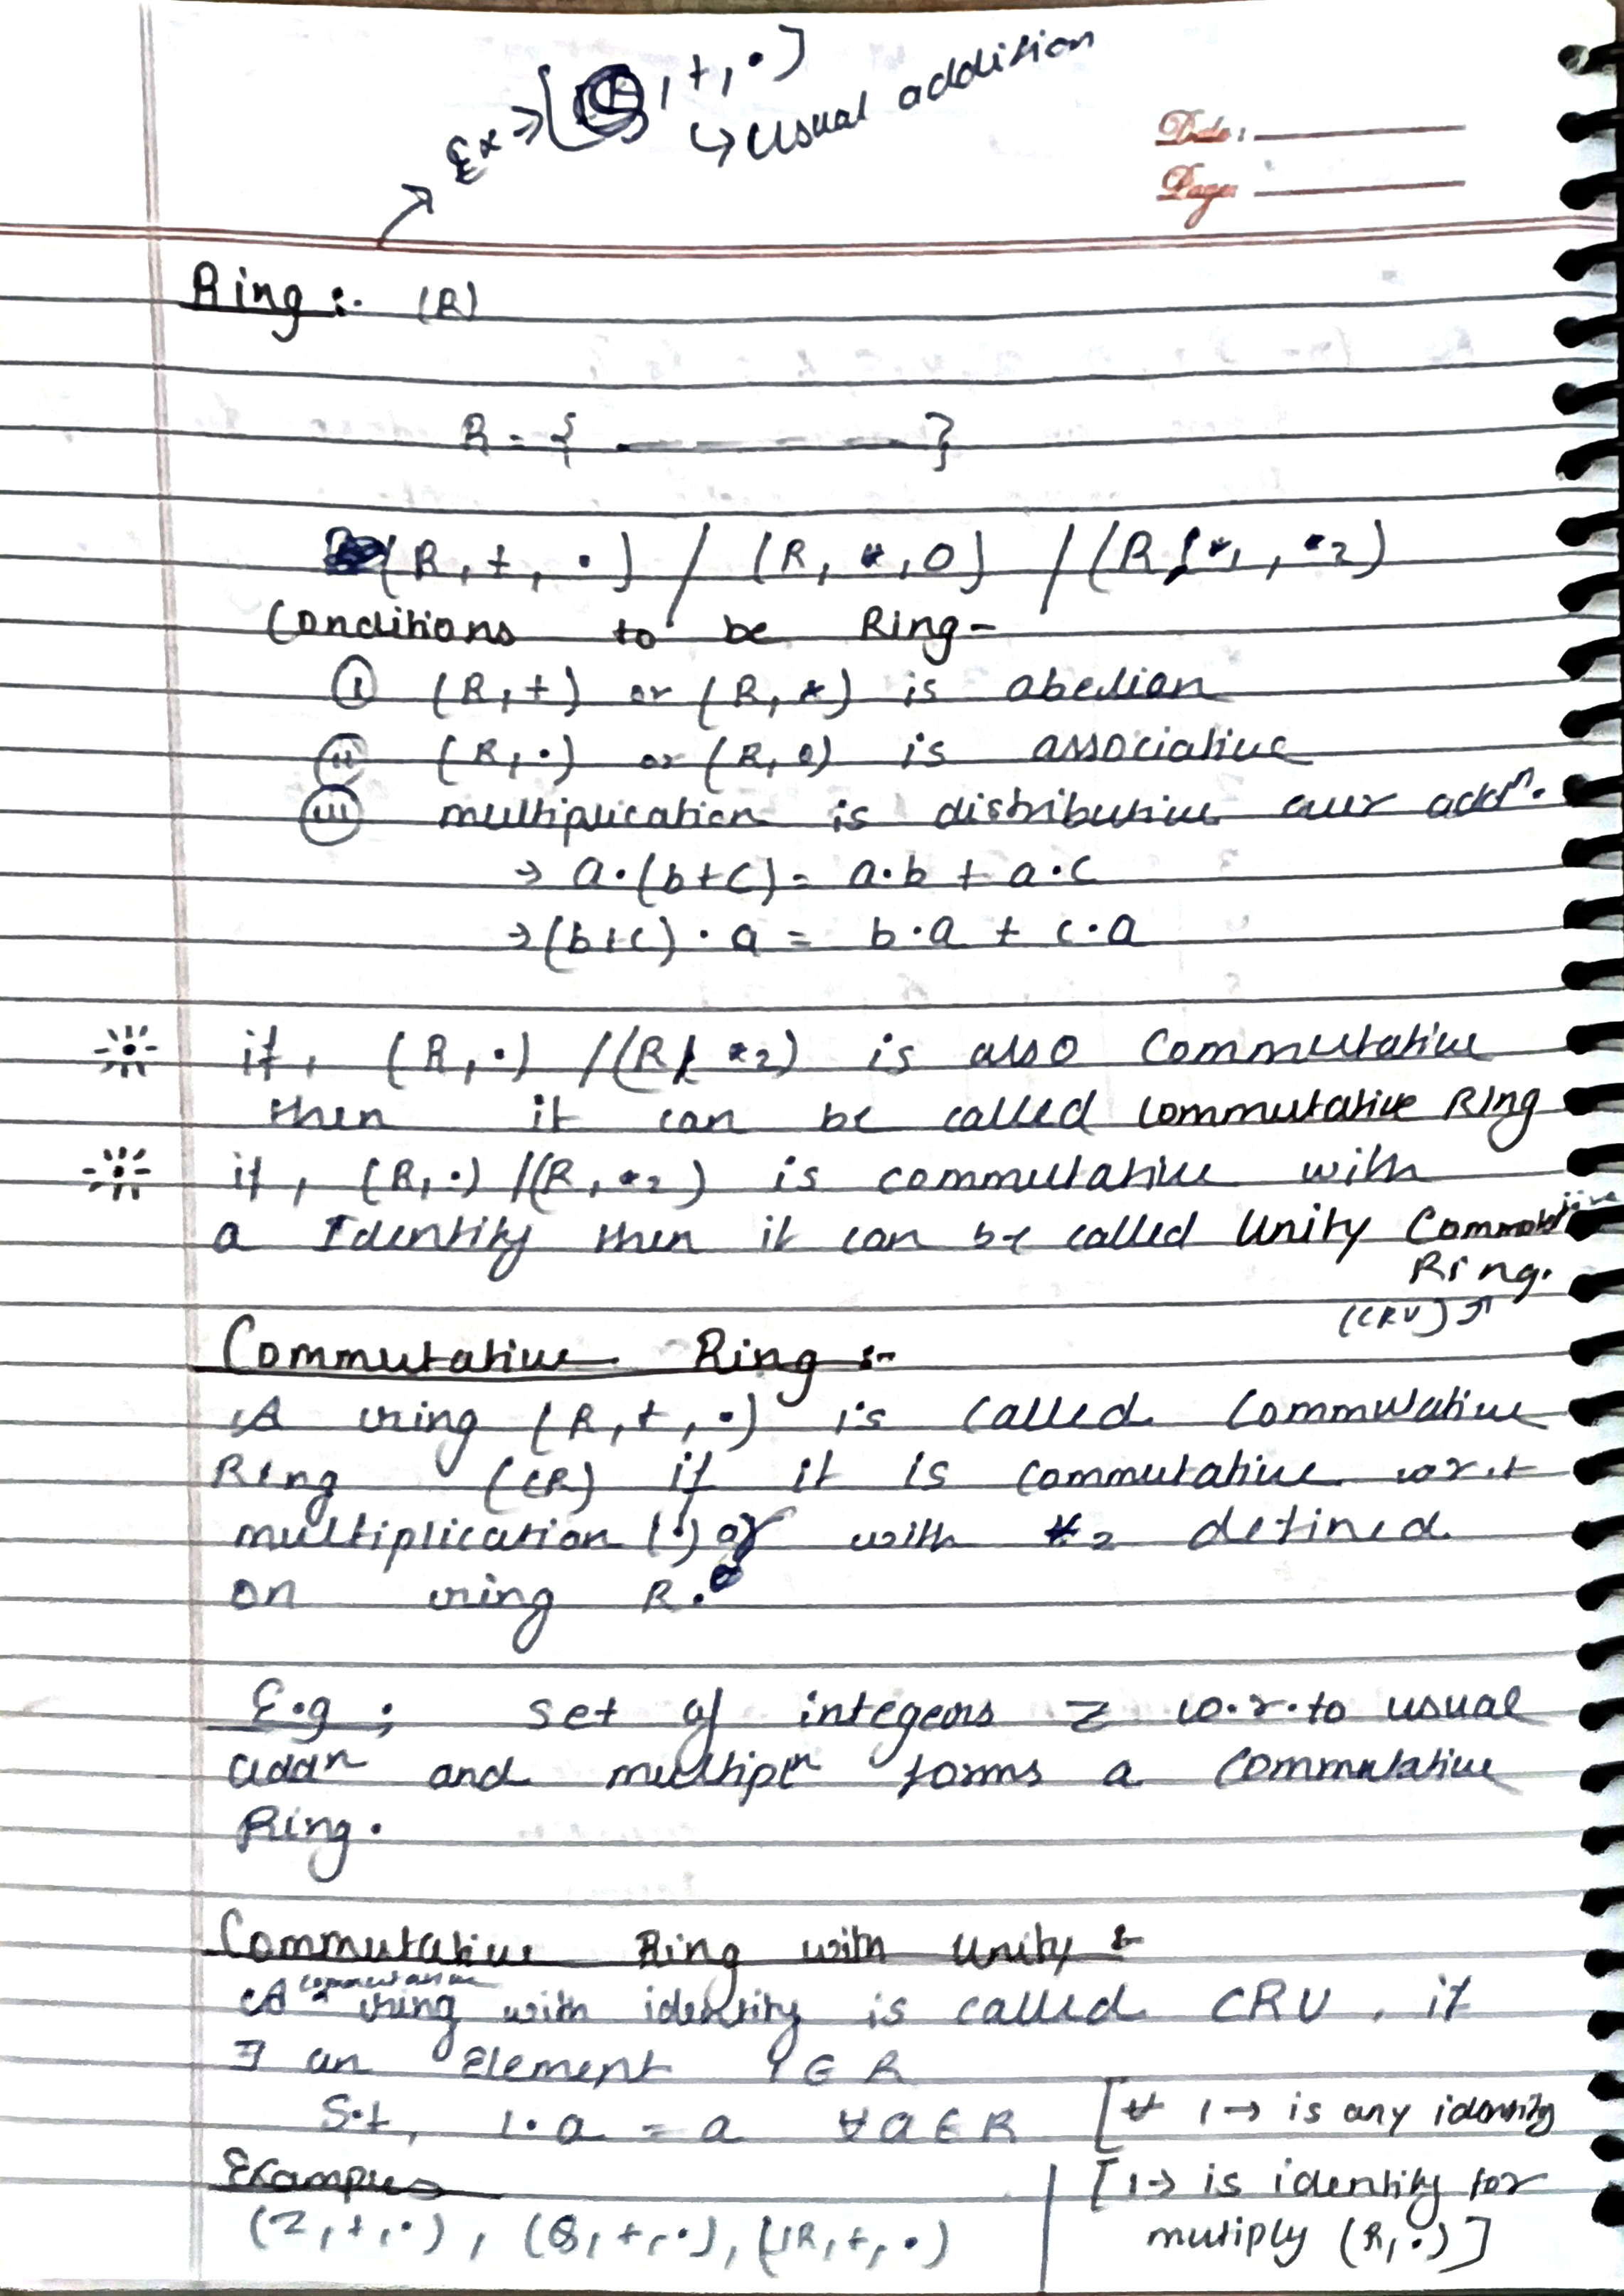 Ex → ( , +, •)
↳ usual addition
Date:
Page:
Ring :- (R)
R = { — — — — }
(R, +, •) / (R, *, o) / (R, *1, *2)
Conditions to be Ring -
(i) (R, +) or (R, *) is abelian
(ii) (R, •) or (R, o) is associative
(iii) multiplication is distributive over addn.
→ a•(b+c) = a•b + a•c
→ (b+c)•a = b•a + c•a
if, (R, •) / (R, *2) is also commutative
then it can be called commutative Ring
if, (R, •) / (R, *2) is commutative with
a Identity then it can be called Unity Commutative
Ring.
(CRU)
Commutative Ring :-
A ring (R, +, •) is called commutative
Ring (CR) if it is commutative w.r.t
multiplication (•) or with *2 defined
on ring R.
E.g ; set of integers Z w.r.to usual
addn and multipln forms a commutative
Ring.
Commutative Ring with Unity :-
A commutative ring with identity is called CRU, if
∃ an Element 1 ∈ R
S.t, 1•a = a ∀ a ∈ R [∀ 1 → is any identity
Example → [1 → is identity for
(Z, +, •), (Q, +, •), (R, +, •) mutiply (R, •)]